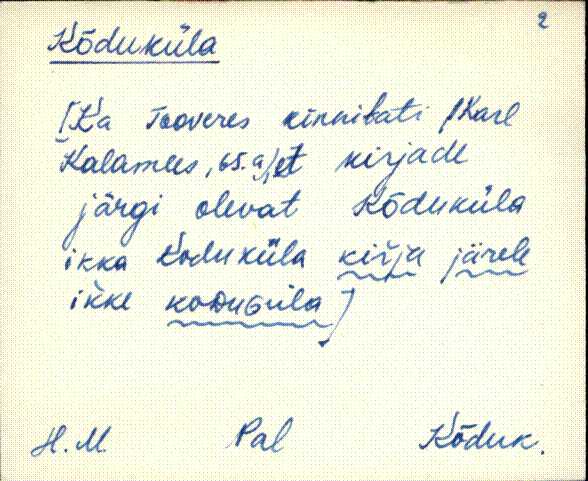 2
Kõduküla
[Ka Tooveres kinnitati (Karl
Kalamees, 65. a), et kirjade
järgi olevat Kõduküla
ikka Koduküla kirja järele
ikke koduGüla]
H. M. Pal Kõduk.